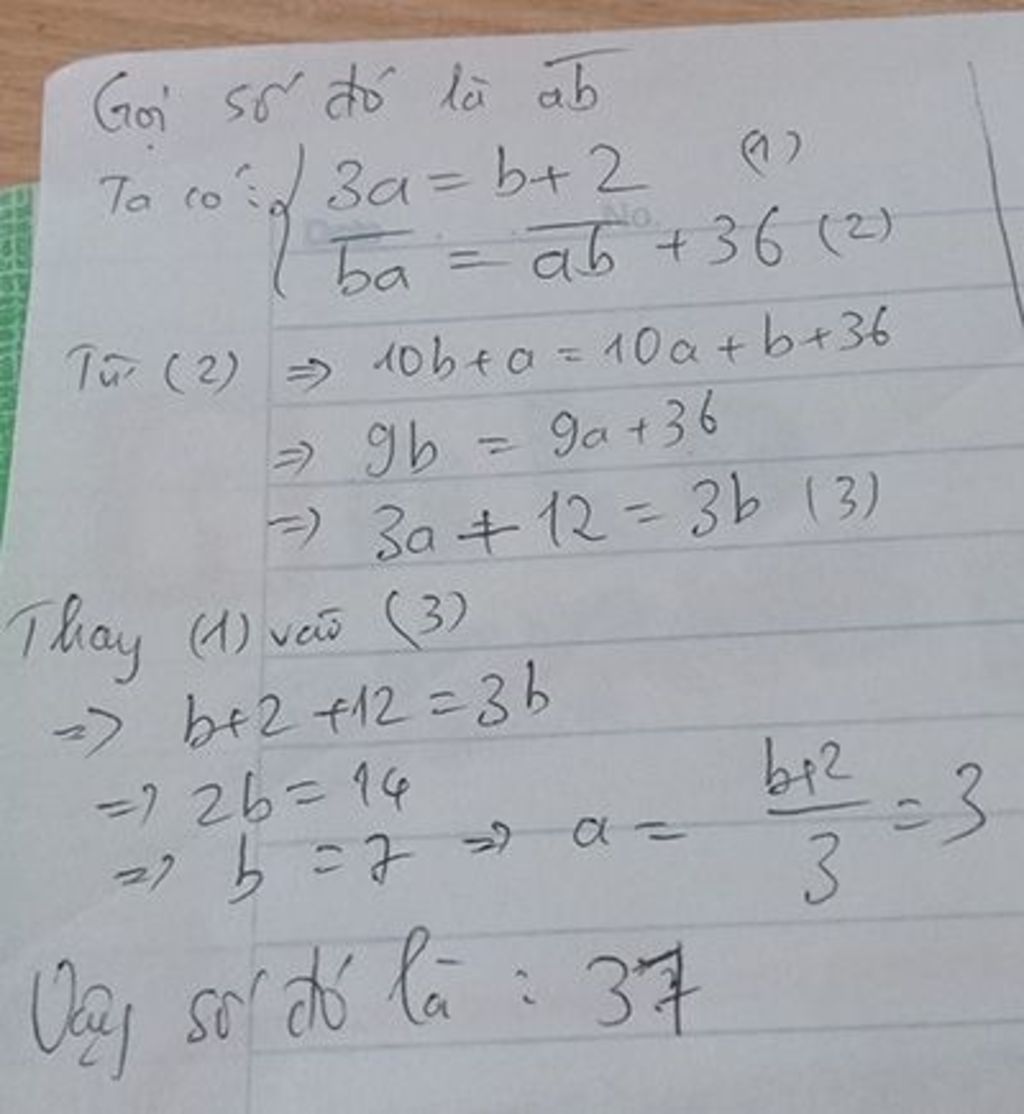 Gọi số đó là $\overline{ab}$
Ta có: { 3a = b + 2 (1)
$\overline{ba}$ = $\overline{ab}$ + 36 (2)
Từ (2) ⇒ 10b + a = 10a + b + 36
⇒ 9b = 9a + 36
⇒ 3a + 12 = 3b (3)
Thay (1) vào (3)
⇒ b + 2 + 12 = 3b
⇒ 2b = 14
⇒ b = 7 ⇒ a = $\frac{b+2}{3}$ = 3
Vậy số đó là : 37